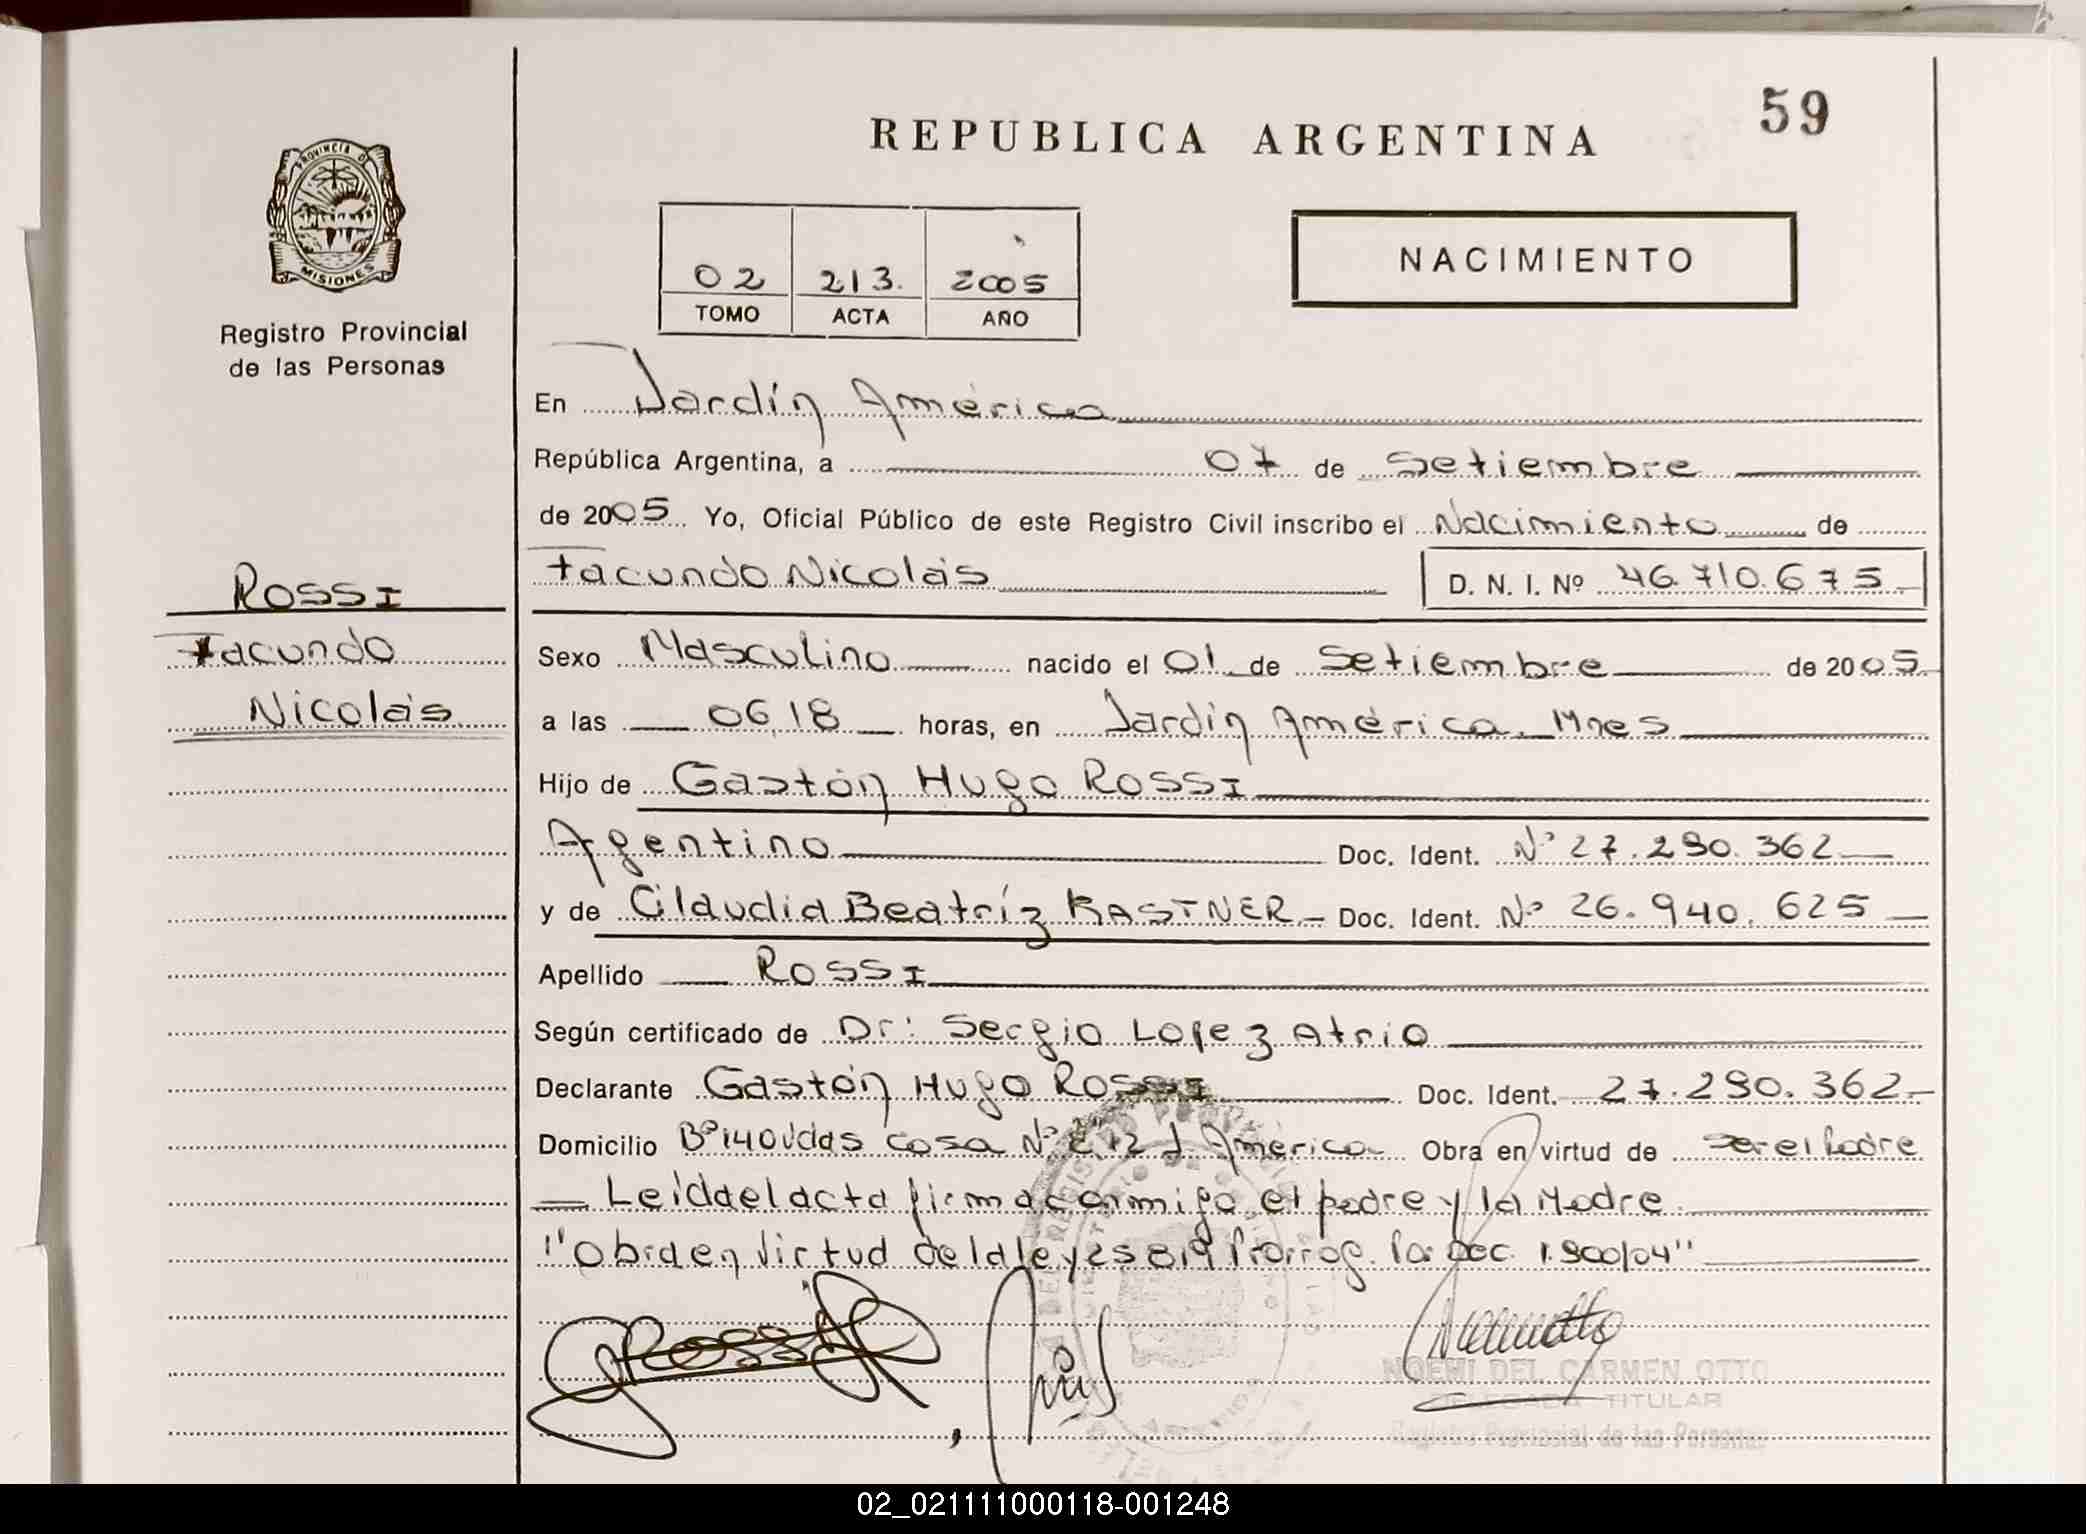 59
REPUBLICA ARGENTINA
PROVINCIA DE
MISIONES
Registro Provincial
de las Personas
02 213. 2005
TOMO ACTA AÑO
NACIMIENTO
En Jardín América
República Argentina, a 07 de Setiembre
de 2005 Yo, Oficial Público de este Registro Civil inscribo el Nacimiento de
Facundo Nicolás D. N. I. Nº 46.710.675
ROSSI
Facundo
Nicolás
Sexo Masculino nacido el 01 de Setiembre de 2005
a las 06,18 horas, en Jardín América. Mnes
Hijo de Gastón Hugo ROSSI
Agentino Doc. Ident. Nº 27.290.362
y de Claudia Beatríz KASTNER Doc. Ident. Nº 26.940.625
Apellido ROSSI
Según certificado de Dr: Sergio Lopez Atrio
Declarante Gastón Hugo ROSSI Doc. Ident. 27.290.362
Domicilio Bº 140 Vdas casa Nº 12 J. América Obra en virtud de ser el Padre
Leída el acta firma conmigo el padre y la Madre.
"Obra en Virtud de la ley 25819 Prorrog. Por Dec. 1.900/04"
GRossi
NOEMI DEL CARMEN OTTO
DELEGADA TITULAR
Registro Provincial de las Personas
02_021111000118-001248